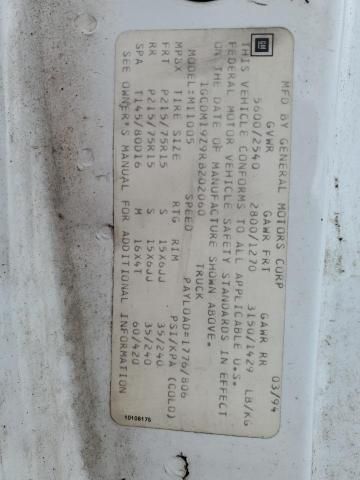 GM
MFD BY GENERAL MOTORS CORP 03/94
GVWR GAWR FRT GAWR RR
5600/2540 2800/1270 3150/1429 LB/KG
THIS VEHICLE CONFORMS TO ALL APPLICABLE U.S.
FEDERAL MOTOR VEHICLE SAFETY STANDARDS IN EFFECT
ON THE DATE OF MANUFACTURE SHOWN ABOVE.
1GCDM19Z9RB202060 TRUCK
MODEL:M11005 PAYLOAD=1776/806
MPBX TIRE SIZE SPEED RTG RIM PSI/KPA (COLD)
FRT P215/75R15 S 15X6JJ 35/240
RR P215/75R15 S 15X6JJ 35/240
SPA T145/80D16 M 16X4T 60/420
SEE OWNER'S MANUAL FOR ADDITIONAL INFORMATION
10108176